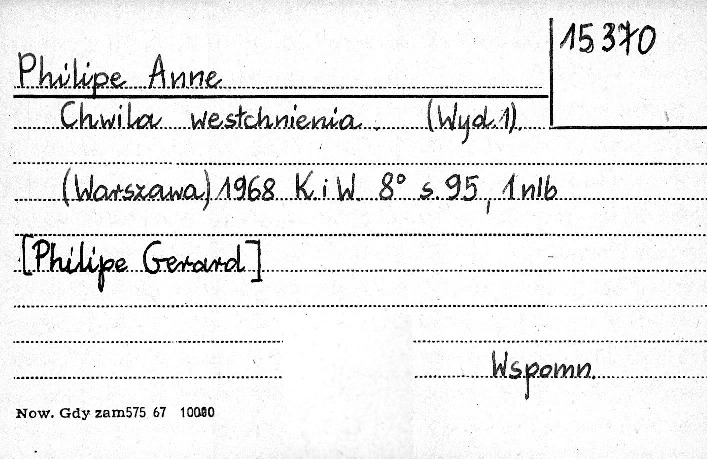 15370
Philipe Anne
Chwila westchnienia. (Wyd.1).
(Warszawa) 1968 K.i W. 8° s.95, 1 nlb
[Philipe Gerard]
Wspomn.
Now. Gdy zam575 67 10000